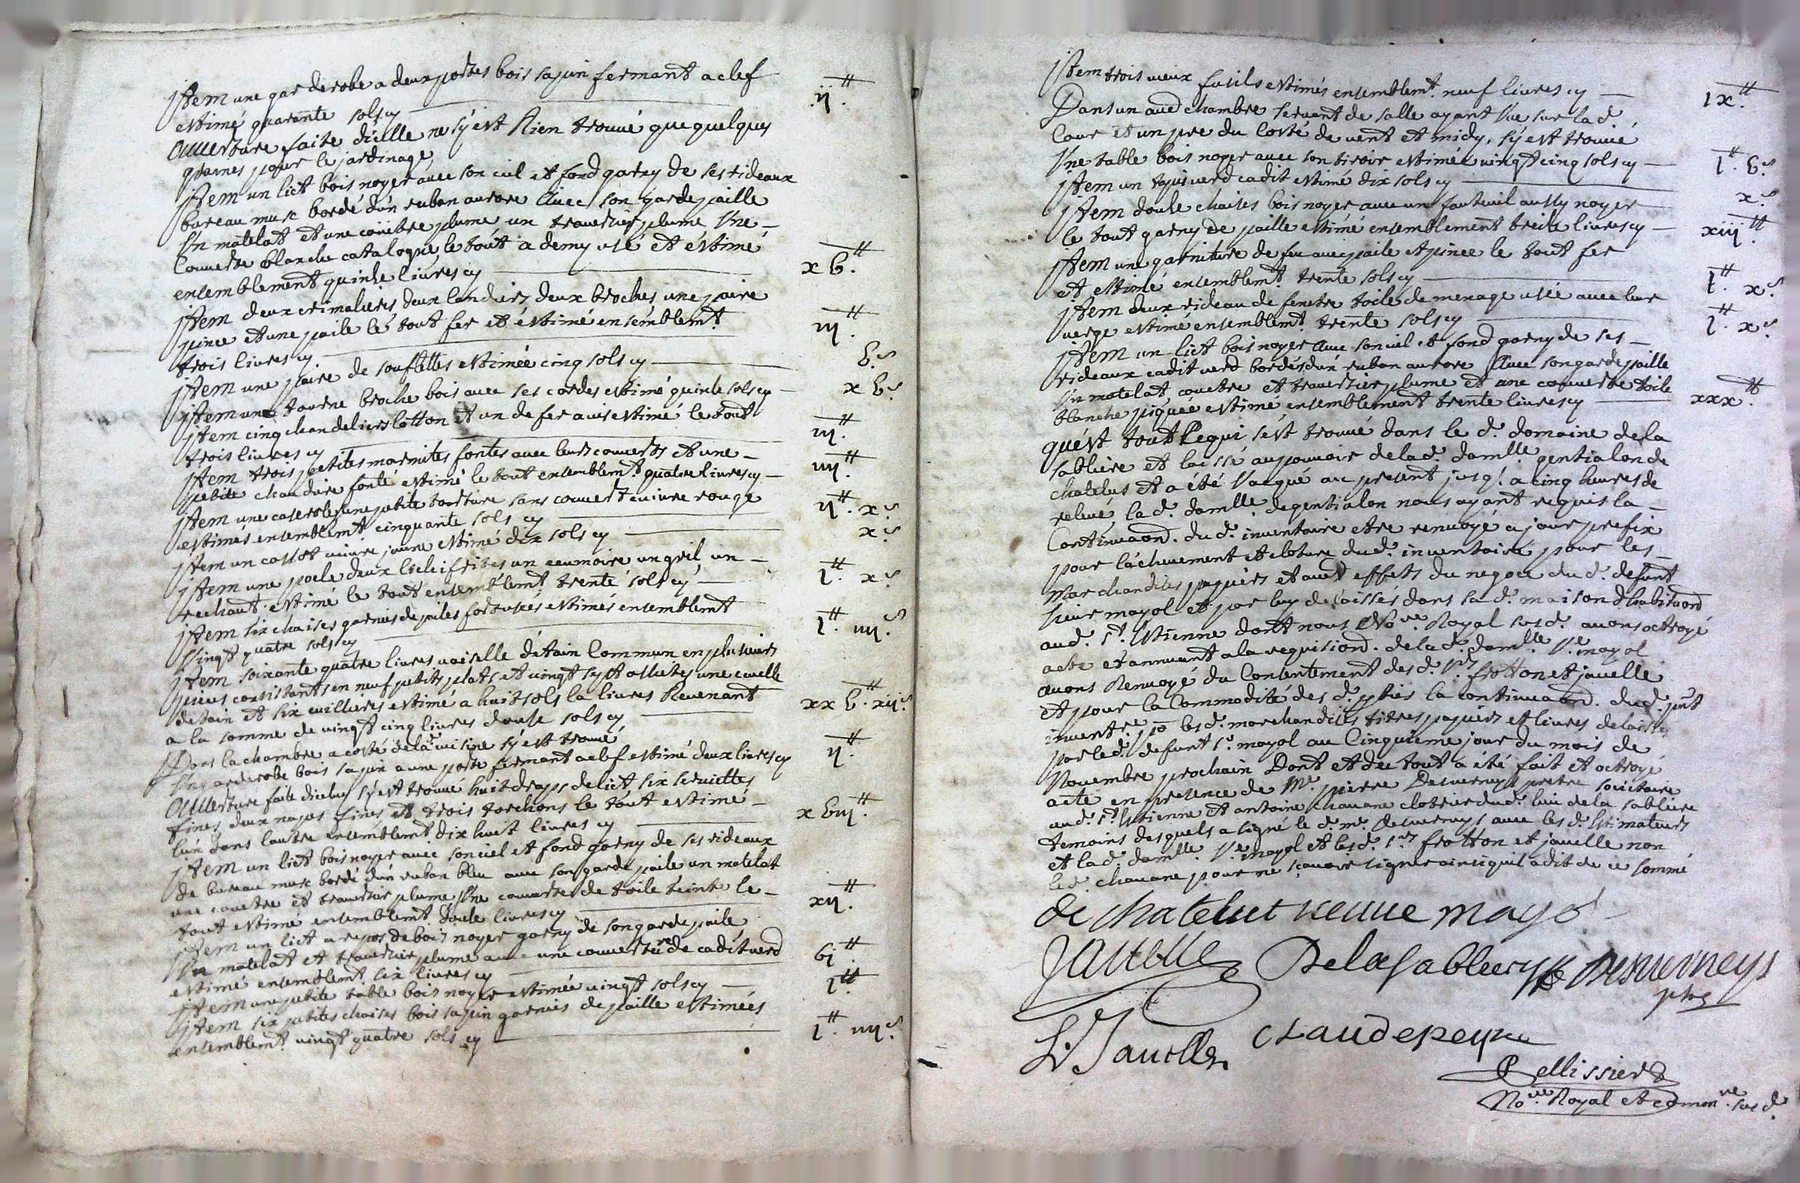 Jtem une garderobe a deux portes bois sapin fermant a clef
estimé quarante sols cy ij.tt
ouverture faite d'icelle ne s'y est Rien trouvé que quelques
graines pour le jardinage
Jtem un lict bois noyer avec son ciel et fond garny de ses rideaux
bureau musc bordé d'un ruban aurore avec son gardepaille
Vn matelat et une couëtre plume un traversier plume Vne
Couverte blanche catalogne le tout a demy usé et estimé
ensemblement quinse livres cy xb.tt
Jtem deux crimaliers deux landiers deux broches une paire
pince et une paile le tout fer et estimé ensemblemt
trois livres cy iij.tt
Jtem une paire de soufflettes estimée cinq sols cy b.s
Jtem un tourne broche bois avec ses cordes estimé quinse sols cy xb.s
Jtem cinq chandeliers lotton et un de fer aussy estimé le tout
trois livres cy iij.tt
Jtem trois petites marmites fontes avec leurs couverts et une
petite chaudiere fonte estimé le tout ensemblemt quatre livres cy iiij.tt
Jtem une casserole une petite tourtiere sans couvert cuivre rouge
estimés ensemblemt cinquante sols cy ij.tt x.s
Jtem un cassot cuivre jaune estimé dix sols cy x.s
Jtem une poele deux lichefrites un ecumoire un gril, un
rechaut estimé le tout ensemblemt trente sols cy j.tt x.s
Jtem six chaises garnies de pailes fort usés estimés ensemblemt
Vingt quatre sols cy j.tt iiij.s
Jtem soixante quatre livres vaiselle d'étain Commun en plusieurs
pieces consistants en neuf petits plats, et vingt sept assiettes une ecuelle
detain et six cuilliers estimé a huit sols la livres Revenant
a la somme de vingt cinq livres douse sols cy xxb.tt xij.s
Dans la chambre a costé de la cuisine s'y est trouvé
Vn garderobe bois sapin a une porte fermant a clef estimé deux livres cy ij.tt
Ouverture faite d'icelui s'y est trouvé huit draps de lict, six serviettes
fines deux napes fines et trois torchons le tout estimé
l'un dans l'autre ensemblemt dix huit livres cy xbiij.tt
Jtem un lict bois noyer avec son ciel et fond garny de ses rideaux
de bureau musc bordé d'un ruban bleu avec son garde paile un matelat
une couëtre et traversier plume Vne couverte de toile teinte le
tout estimé ensemblemt douse livres cy xij.tt
Jtem un lict a repos de bois noyer garny de son garde paile
Vn matelat et traversier plume avec une couverture de cadit verd
estimé ensemblemt six livres cy bj.tt
Jtem une petite table bois noyer estimée vingt sols cy j.tt
Jtem six petites chaises bois sapin garnies de paille estimées
ensemblemt vingt quatre sols cy j.tt iiij.s
Jtem trois vieux fusils estimés ensemblemt neuf livres cy ix.tt
Dans un aud chambre servant de salle ayant Vue sur lad
Cour et un pre du Costé de vent et midy, s'y est trouvé
Vne table bois noyer avec son tiroir estimée vingt cinq sols cy j.tt b.s
Jtem un tapis verd cadit estimé dix sols cy x.s
Jtem douse chaises bois noyer avec un fauteuil aussy noyer
le tout garny de paille estimé ensemblement treise livres cy xiij.tt
Jtem une garniture de feu avec paile et pince le tout fer
et estimé ensemblemt trente sols cy j.tt x.s
Jtem deux rideau de fenetre toile de menage usée avec leur
verge estimé ensemblemt trente sols cy j.tt x.s
Jtem un lict bois noyer avec son ciel et fond garny de ses
rideaux cadit verd bordés d'un ruban aurore avec son garde paille
Vn matelat couëtre et traversier plume et une couverte toile
blanche piquée estimé ensemblement trente livres cy xxx.tt
quest tout Cequi s'est trouvé dans le d. domaine de la
sabliere et laissé au pouvoir de la d. damlle gentialon de
chatelus et a été Vacqué au present jusq. a cinq heures de
releve la d. damlle de gentialon nous ayant requis la
Continuaon. du d. inventaire etre renvoyé a jour prefix
pour l'achevement et cloture dud. inventaire pour les
marchandises papiers et aud effets du negoce du d. defunt
sieur mayol et par luy delaisses dans sa d. maison d'habitaon
aud. St. Estienne dont nous No.re Royal susd. avons octroyé
acte et annuant a la requisiond. de la d. damlle Ve. mayol
avons Renvoyé du Consentement des d. Srs. frotton et javelle
et pour la Commodité des d. pties la continuaond. dud. pnt
invent.re po les d. marchandises titres papiers et livres delaisses
par le d. defunt Sr. mayol au Cinquieme jour du mois de
Novembre prochain Dont et du tout a été fait et octroyé
acte en presence de Me. pierre Desverneys pretre sociétaire
aud. St. Estienne et antoine chavane clotrier dud. lieu de la sabliere
temoins desquels a signé le d. mre Desverneys avec les d. Estimateurs
et la d. damlle. Ve. mayol et les d. Srs frotton et javelle non
le d. chavane pour ne sçavoir signer ainsi qu'il a dit de ce sommé
de chatelut veuve mayol
Javelle Delasabliere Desverneys
ptre
Javelle Claude peyre
Pellissier
No.re Royal et commre. susd.